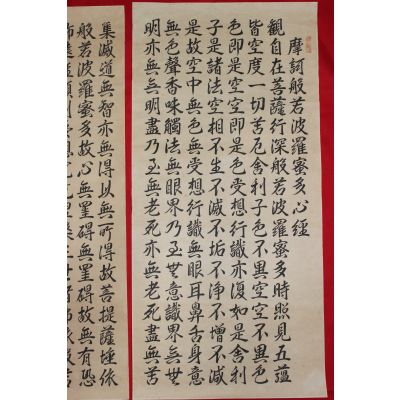 摩訶般若波羅蜜多心經
觀自在菩薩行深般若波羅蜜多時照見五蘊
皆空度一切苦厄舍利子色不異空空不異色
色即是空空即是色受想行識亦復如是舍利
子是諸法空相不生不滅不垢不淨不增不減
是故空中無色無受想行識無眼耳鼻舌身意
無色聲香味觸法無眼界乃至無意識界無無
明亦無無明盡乃至無老死亦無老死盡無苦
集滅道無智亦無得以無所得故菩提薩埵依
般若波羅蜜多故心無罣礙無罣礙故無有恐